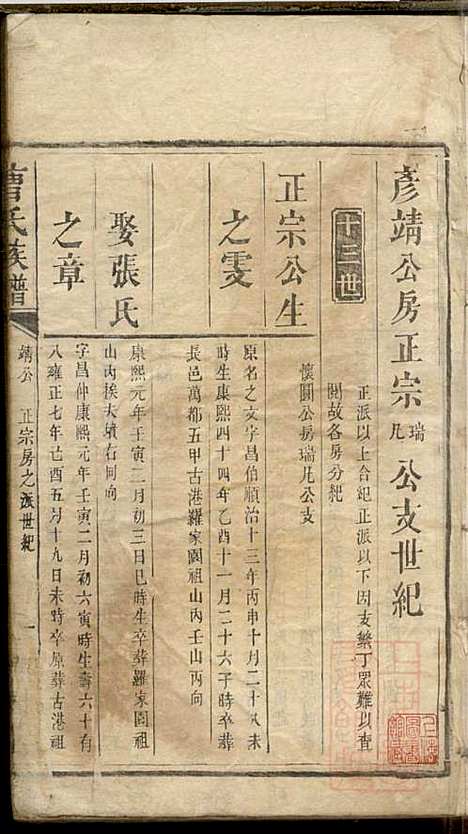 彥靖公房正宗瑞凡公支世紀
正派以上合紀正派以下因支繁丁眾難以查
閱故各房分紀
十三世
懷圓公房瑞凡公支
正宗公生
之雯
原名之文字昌伯順治十三年丙申十月二十八未
時生康熙四十四年乙酉十一月二十六子時卒葬
長邑萬都五甲古港羅家園祖山內壬山丙向
娶張氏
康熙元年壬寅二月初三日巳時生卒葬羅家園祖
山內挨夫墳右同向
之章
字昌仲康熙元年壬寅二月初六寅時生壽六十有
八雍正七年己酉五月十九日未時卒原葬古港祖
曹氏族譜
靖公 正宗房之派世紀 一